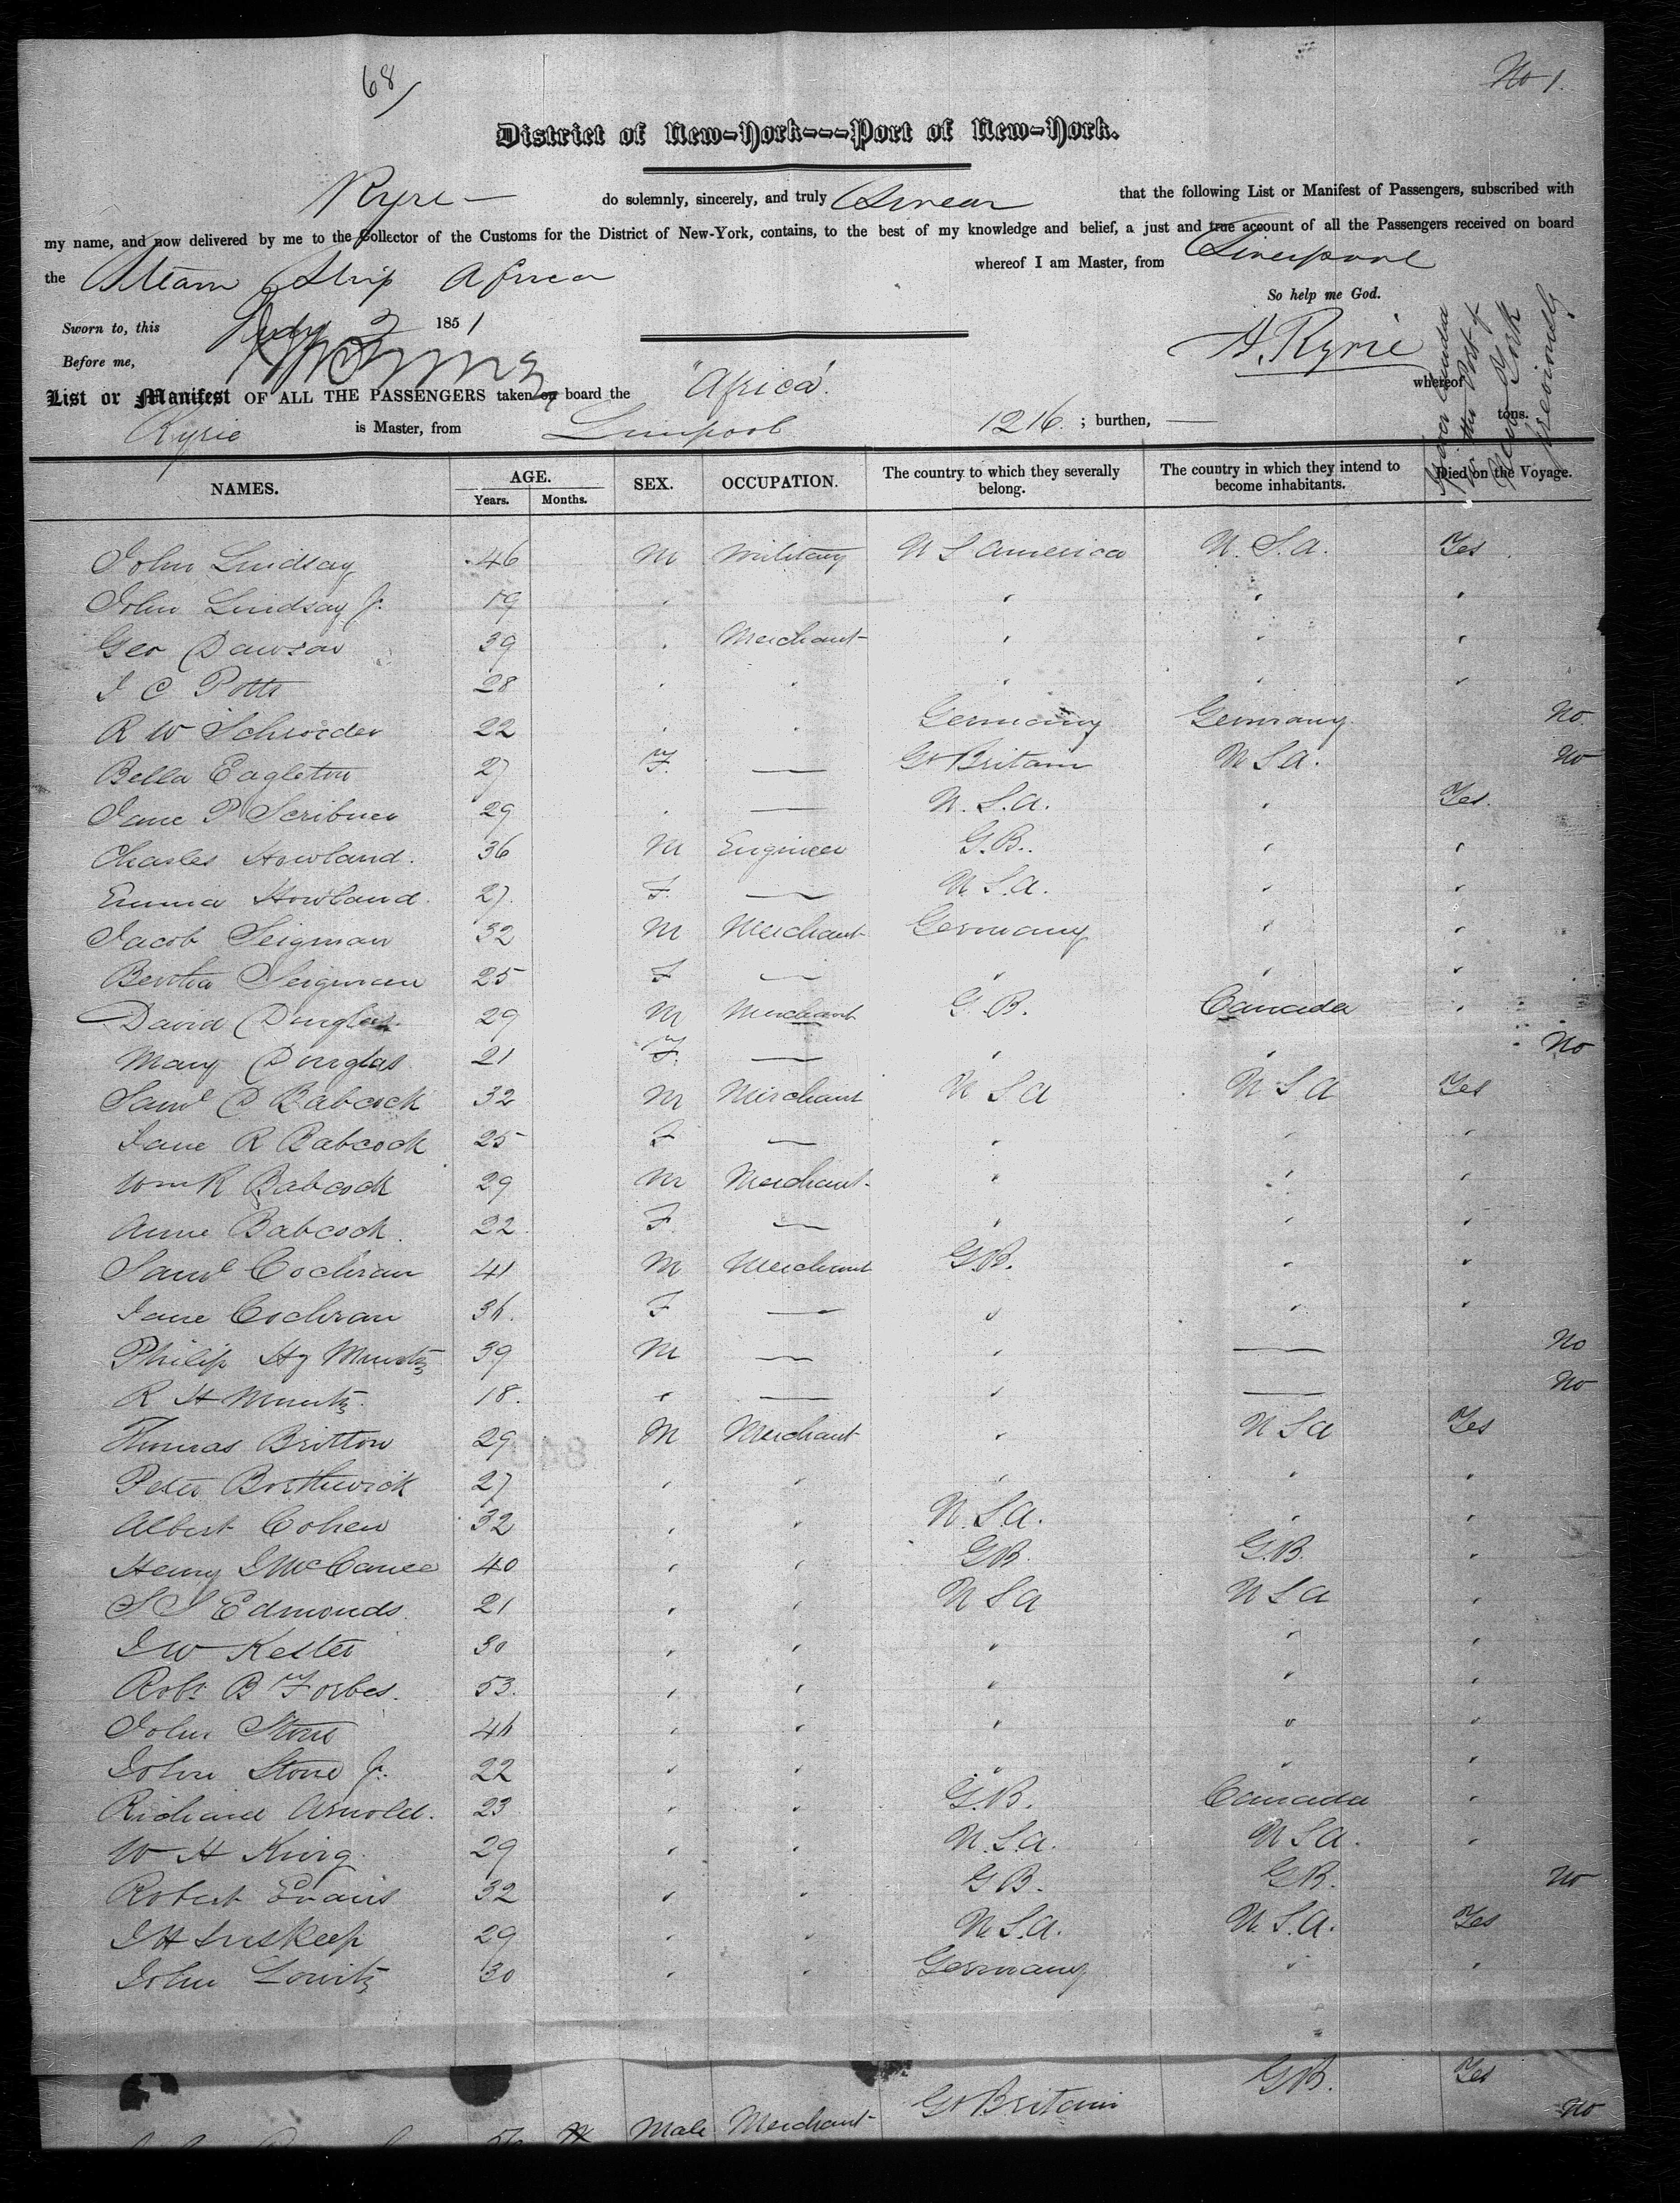 68/
No 1.
District of New-York---Port of New-York.
Ryrie — do solemnly, sincerely, and truly Swear that the following List or Manifest of Passengers, subscribed with
my name, and now delivered by me to the Collector of the Customs for the District of New-York, contains, to the best of my knowledge and belief, a just and true account of all the Passengers received on board
the Steam Ship Africa whereof I am Master, from Liverpool
So help me God.
Sworn to, this July 2 1851
A. Ryrie
Before me,
List or Manifest OF ALL THE PASSENGERS taken on board the "Africa". whereof
Ryrie is Master, from Liverpool 1216. ; burthen, — tons.
the Port of
New York
previously
NAMES. AGE. Years. Months. SEX. OCCUPATION. The country to which they severally belong. The country in which they intend to become inhabitants. Died on the Voyage.
John Lindsay 46 M Military U S America U. S. A. Yes
John Lindsay Jr. 19 " " " "
Geo Dawson 39 " Merchant " " "
J C Potts 28 " " " " "
R W Schroeder 22 " " Germany Germany No.
Bella Eagleton 27 F. — Gt Britain U S A. No
Jane P Scribner 29 " — U. S. A. " Yes.
Charles Howland. 36 M Engineer G. B. " "
Emma Howland. 27. F. — U. S. A. " "
Jacob Seigman 32 M Merchant Germany " "
Bertha Seigman 25 F — " " "
David Douglas. 29 M Merchant G. B. Canada "
Mary Douglas 21 F. — " " No
Saml D Babcock 32 M Merchant U S A U S A Yes
Jane R Babcock 25 F — " " "
Wm R Babcock 29 M Merchant " " "
Anne Babcock. 22 F — " " "
Saml Cochran 41 M Merchant G. B. " "
Jane Cochran 36. F — " " "
Philip Hy Muntz 39 M — " — No
R H Muntz. 18. " — " — No
Thomas Britton 29 M Merchant " U S A Yes
Peter Borthwick 27 " " " " "
Albert Cohen 32 " " U. S. A. " "
Henry J McCance 40 " " G B. G. B. "
S S Edmonds. 21 " " U S A U S A "
J W Kester 30 " " " " "
Robt B Forbes. 53. " " " " "
John Stone 46 " " " " "
John Stone Jr. 22 " " " " "
Richard Arnold. 23 " " G. B. Canada "
W H King. 29 " " U. S. A. U S A. "
Robert Evans 32 " " G B. G B. No
J H Inskeep 29 " " U S. A. U. S. A. Yes
John Lowitz 30 " " Germany " "
G B. Yes
Male Merchant Gt Britain No